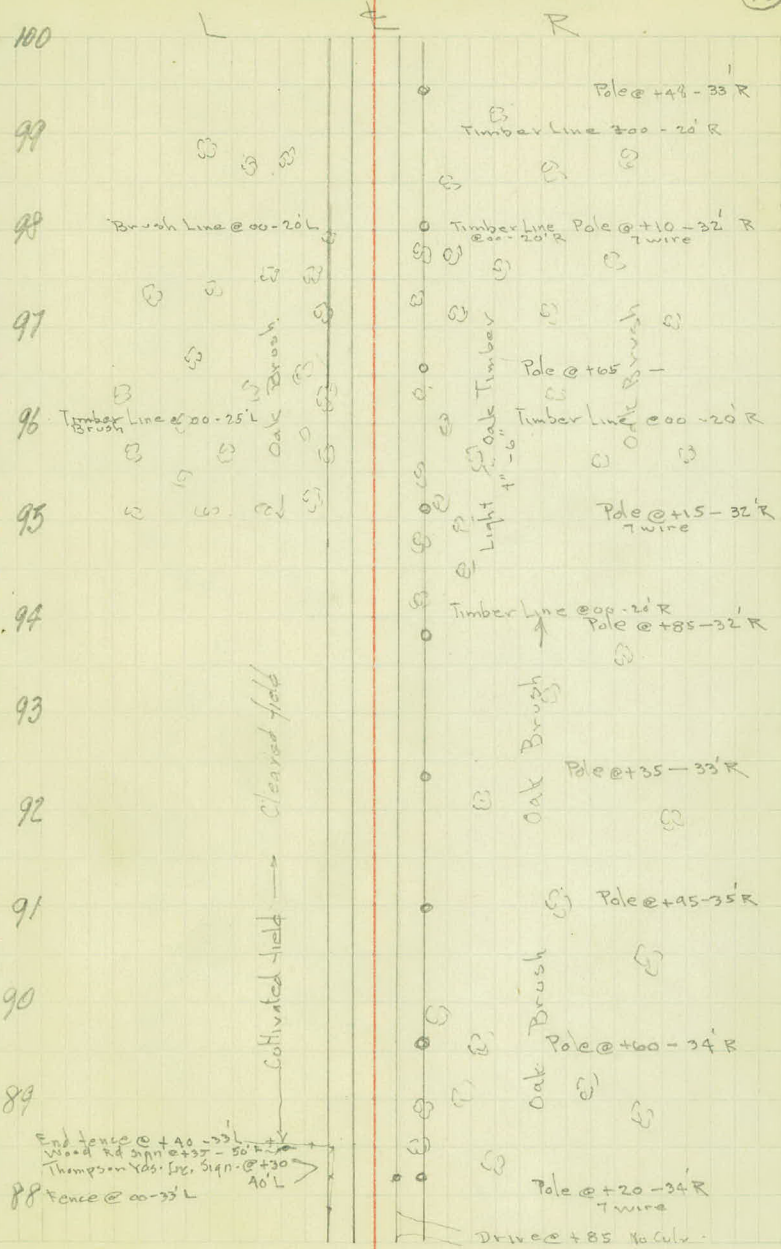 L ℄ R
100
Pole @ +48 - 33' R
99
Timber Line +00 - 20' R
98
Brush Line @ 00-20'L
Timber Line
@ 00-20' R
Pole @ +10-32' R
7 wire
97
Oak Brush
Light Oak Timber
4"-6"
Oak Brush
Pole @ +65 —
96
Timber Line @ 00-25'L
Brush
Timber Line @ 00 -20' R
95
Pole @ +15-32' R
7 wire
94
Timber Line @ 00-20' R
Pole @ +85-32' R
93
Cultivated field — Cleared field
Oak Brush
Pole @ +35 — 33' R
92
91
Pole @ +95-35' R
90
Oak Brush
Pole @ +60 - 34' R
89
End fence @ +40 -33'L
Wood Rd sign @ +35 - 50'
Thompson Yds. Inc. Sign - @ +30
40'L
88
Fence @ 00-33'L
Pole @ +20-34' R
7 wire
Drive @ +85 No Culv.